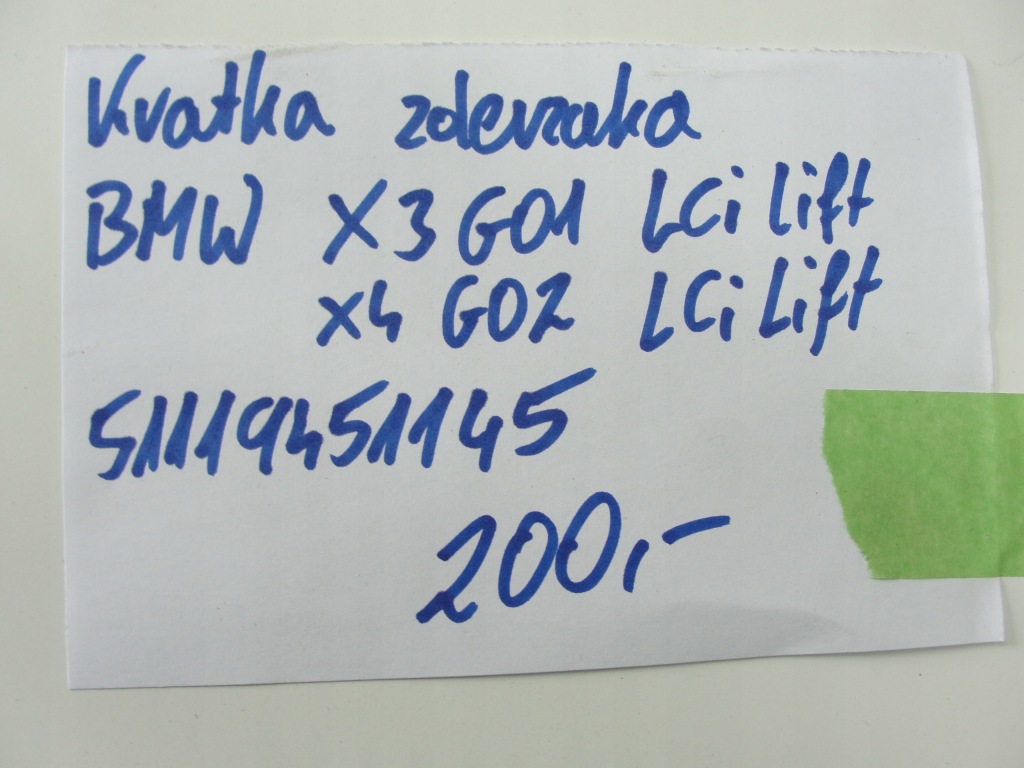 Kratka zderzaka
BMW X3 G01 LCi Lift
X4 G02 LCi Lift
51119451145
200,-